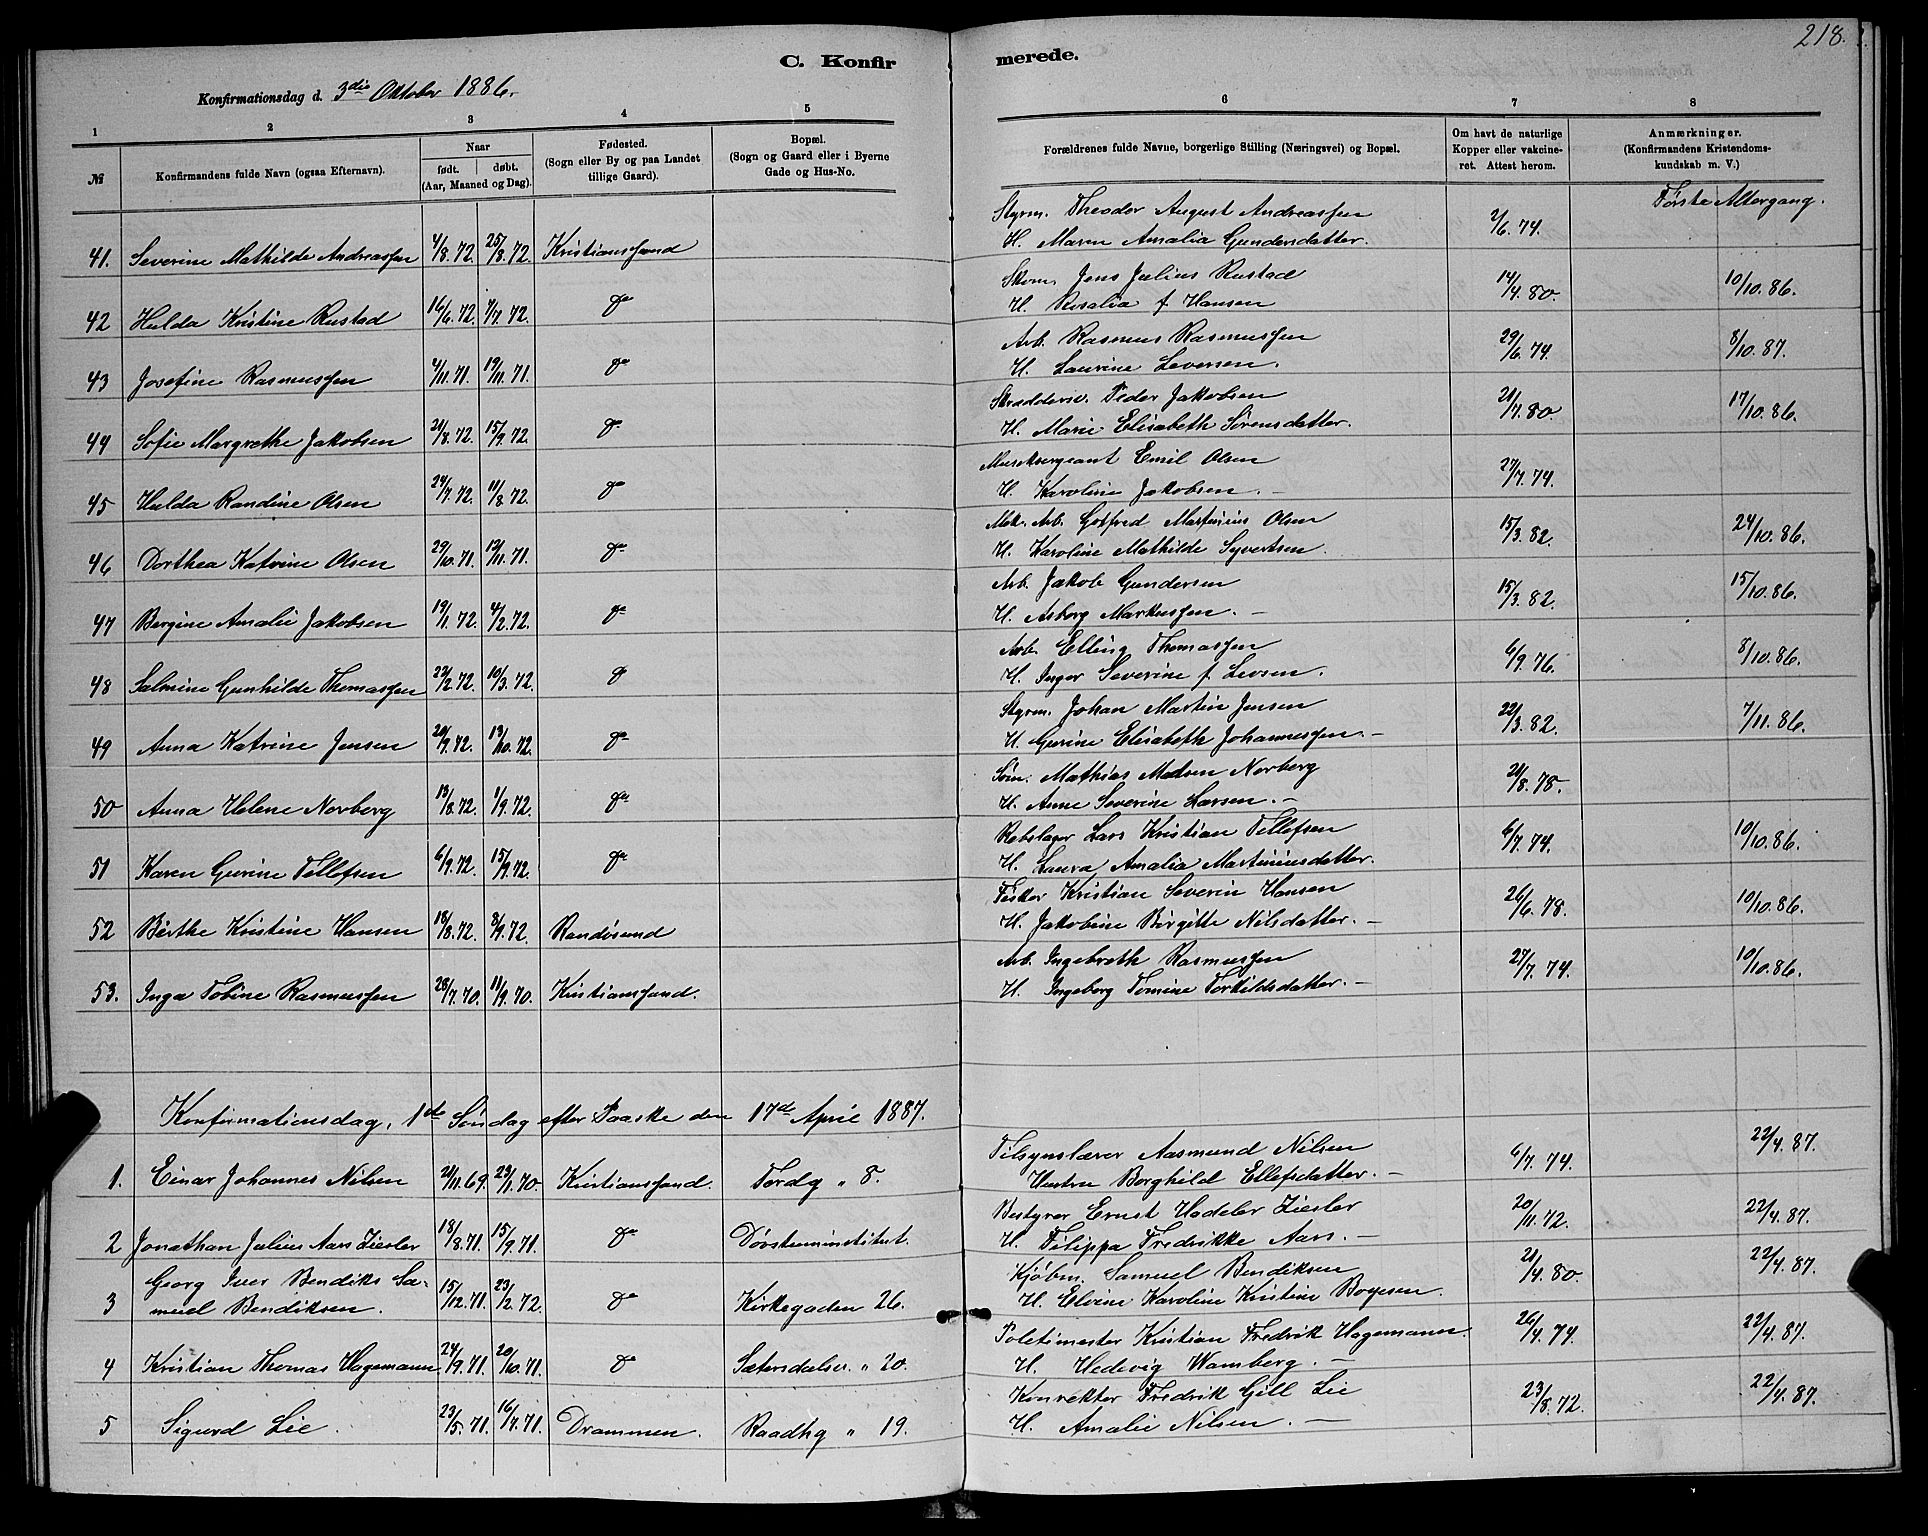 218.
C. Konfirmerede.
Konfirmationsdag d. 3die Oktober 1886.
1 2 3 4 5 6 7 8
№ Konfirmandens fulde Navn (ogsaa Efternavn). Naar født. døbt. (Aar, Maaned og Dag). Fødested. (Sogn eller By og paa Landet tillige Gaard). Bopæl. (Sogn og Gaard eller i Byerne Gade og Hus-No. Forældrenes fulde Navne, borgerlige Stilling (Næringsvei) og Bopæl. Om havt de naturlige Kopper eller vakcineret. Attest herom. Anmærkninger. (Konfirmandens Kristendomskundskab m. V.)
Første Altergang.
41. Severine Mathilde Andreassen 4/8.72. 25/8.72. Kristianssand Styrm. Theodor August Andreassen 2/6.74.
H. Maren Amalia Gundersdatter.
42 Hulda Kristine Rustad 16/6.72. 7/7.72. do Skom. Jens Julius Rustad 14/4.80. 10/10.86.
H. Rosalia f. Hansen
43 Josefine Rasmussen 4/11.71. 19/11.71. do Arb. Rasmus Rasmussen 29/6.74. 8/10.87.
H. Laurine Leversen.
44 Sofie Margrethe Jakobsen 21/8.72. 15/9.72. do Skrædderm. Peder Jakobsen 21/7.80 17/10.86.
H. Marie Elisabeth Sørensdatter.
45 Hulda Randine Olsen 24/7.72. 11/8.72. do Musiksergeant Emil Olsen 27/7.74.
H. Karoline Jakobsen. —
46 Dorthea Katrine Olsen 29/10.71. 12/11.71. do Mek. Arb. Gotfred Martinius Olsen 15/3.82. 24/10.86.
H. Karoline Mathilde Syvertsen.
47 Bergine Amalie Jakobsen 19/1.72. 4/2.72. do Arb. Jakob Gundersen 15/3.82. 15/10.86.
H. Asborg Markussen. —
48 Salmine Gunhilde Thomassen 22/2.72. 10/3.72. do Arb. Elling Thomassen 6/9.76. 8/10.86.
H. Inger Severine f. Levsen.
49 Anna Katrine Jensen 20/9.72. 13/10.72. do Styrm. Johan Martin Jensen 22/3.82. 7/11.86.
H. Gurine Elisabeth Johannessen. —
50 Anna Helene Norberg 13/8.72. 1/9.72. do Søm. Mathias Madsen Norberg 21/8.78.
H. Anne Severine Larsen. —
51 Karen Gurine Tellefsen 6/9.72. 15/9.72. do Rebslager Lars Kristian Tellefsen 6/7.74. 10/10.86.
H. Laura Amalia Martiniusdatter.
52 Birthe Kristine Hansen 18/8.72. 8/9.72. Randøsund Fisker Kristian Severin Hansen 26/6.78. 10/10.86.
H. Jakobine Birgitte Nilsdatter. —
53. Inga Tobine Rasmussen 28/7.70. 11/9.70. Kristianssand. Arb. Ingebreth Rasmussen 27/7.74. 10/10.86.
H. Ingeborg Tomine Torkildsdatter. —
Konfirmationsdag, 1ste Søndag efter Paaske den 17de April 1887.
1. Einar Johannes Nilsen 21/11.69. 23/1.70. Kristianssand. Tordg " 8. Tilsynslærer Aasmund Nilsen 6/7.74. 22/4.87.
Hustru Borghild Ellefsdatter. —
2 Jonathan Julius Aars Ziesler 18/8.71. 15/9.71. do Døvstuminstitut. Bestyrer Ernst Hadeler Ziesler 20/11.72. 22/4.87.
H. Filippa Fredrikke Aars. —
3 Georg Iver Bendiks Samuel Bendiksen. 15/12.71. 23/2.72. do Kirkegaden 26. Kjøbm. Samuel Bendiksen 21/4.80. 22/4.87.
H. Elvine Karoline Kristine Boyesen.
4 Kristian Thomas Hagemann 24/9.71. 20/10.71. do Sætersdalsv. " 20. Politimester Kristian Fredrik Hagemann. 26/4.74. 22/4.87.
H. Hedevig Wamberg. —
5 Sigurd Lie. 23/5.71. 16/7.71. Drammen. Raadhg " 19. Konrektor Fredrik Gill Lie 23/8.72. 22/4.87.
H. Amalie Nilsen. —